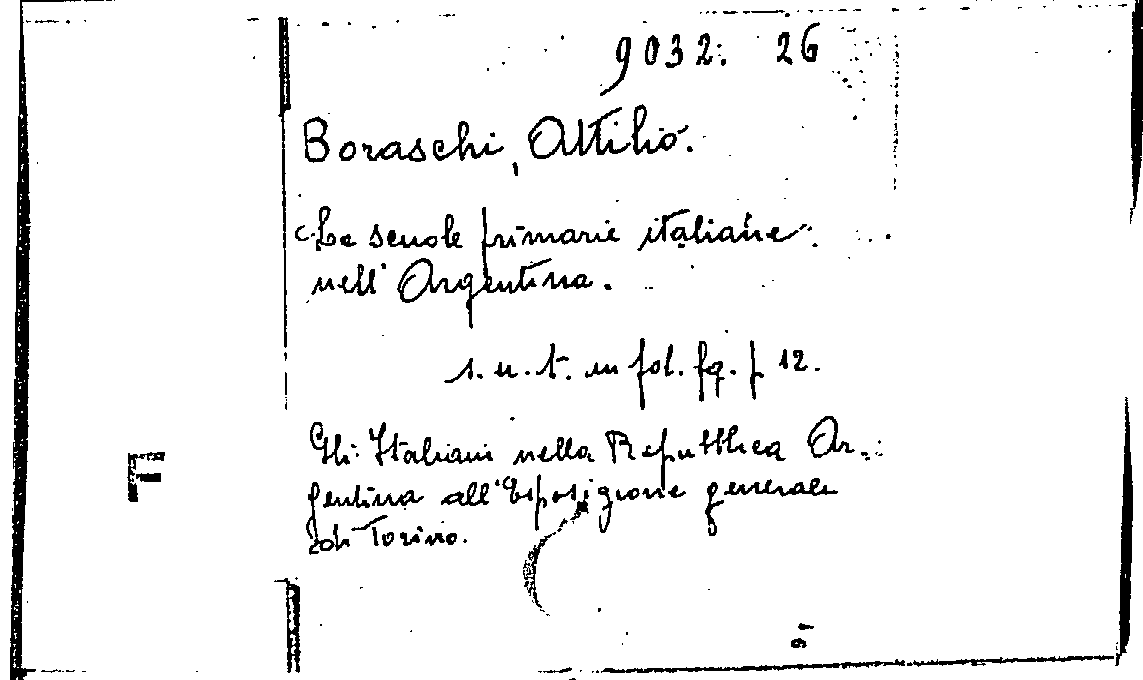 9032. 26
Boraschi, Attilio.
Le scuole primarie italiane
nell' Argentina.
s. n. t. in fol. fg. p 12.
Gli Italiani nella Repubblica Ar-
gentina all'Esposizione generale
di Torino.
F